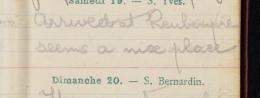 (Samedi 19. — S. Yves.)
Arrived at
seems a nice place
Dimanche 20. — S. Bernardin.